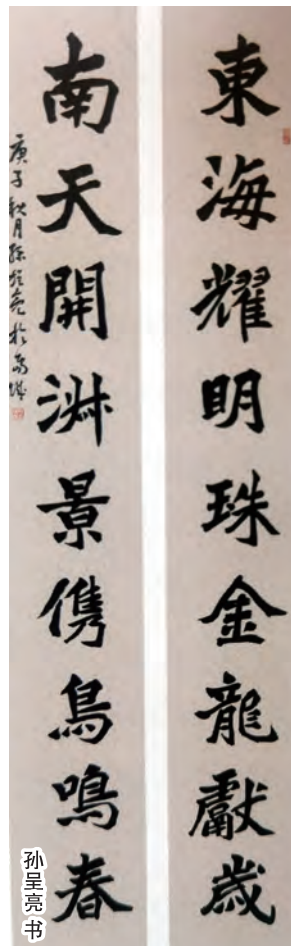 東海耀明珠金龍獻歲
南天開淑景儁鳥鳴春
庚子秋月孫呈亮於禹城
孙呈亮 书